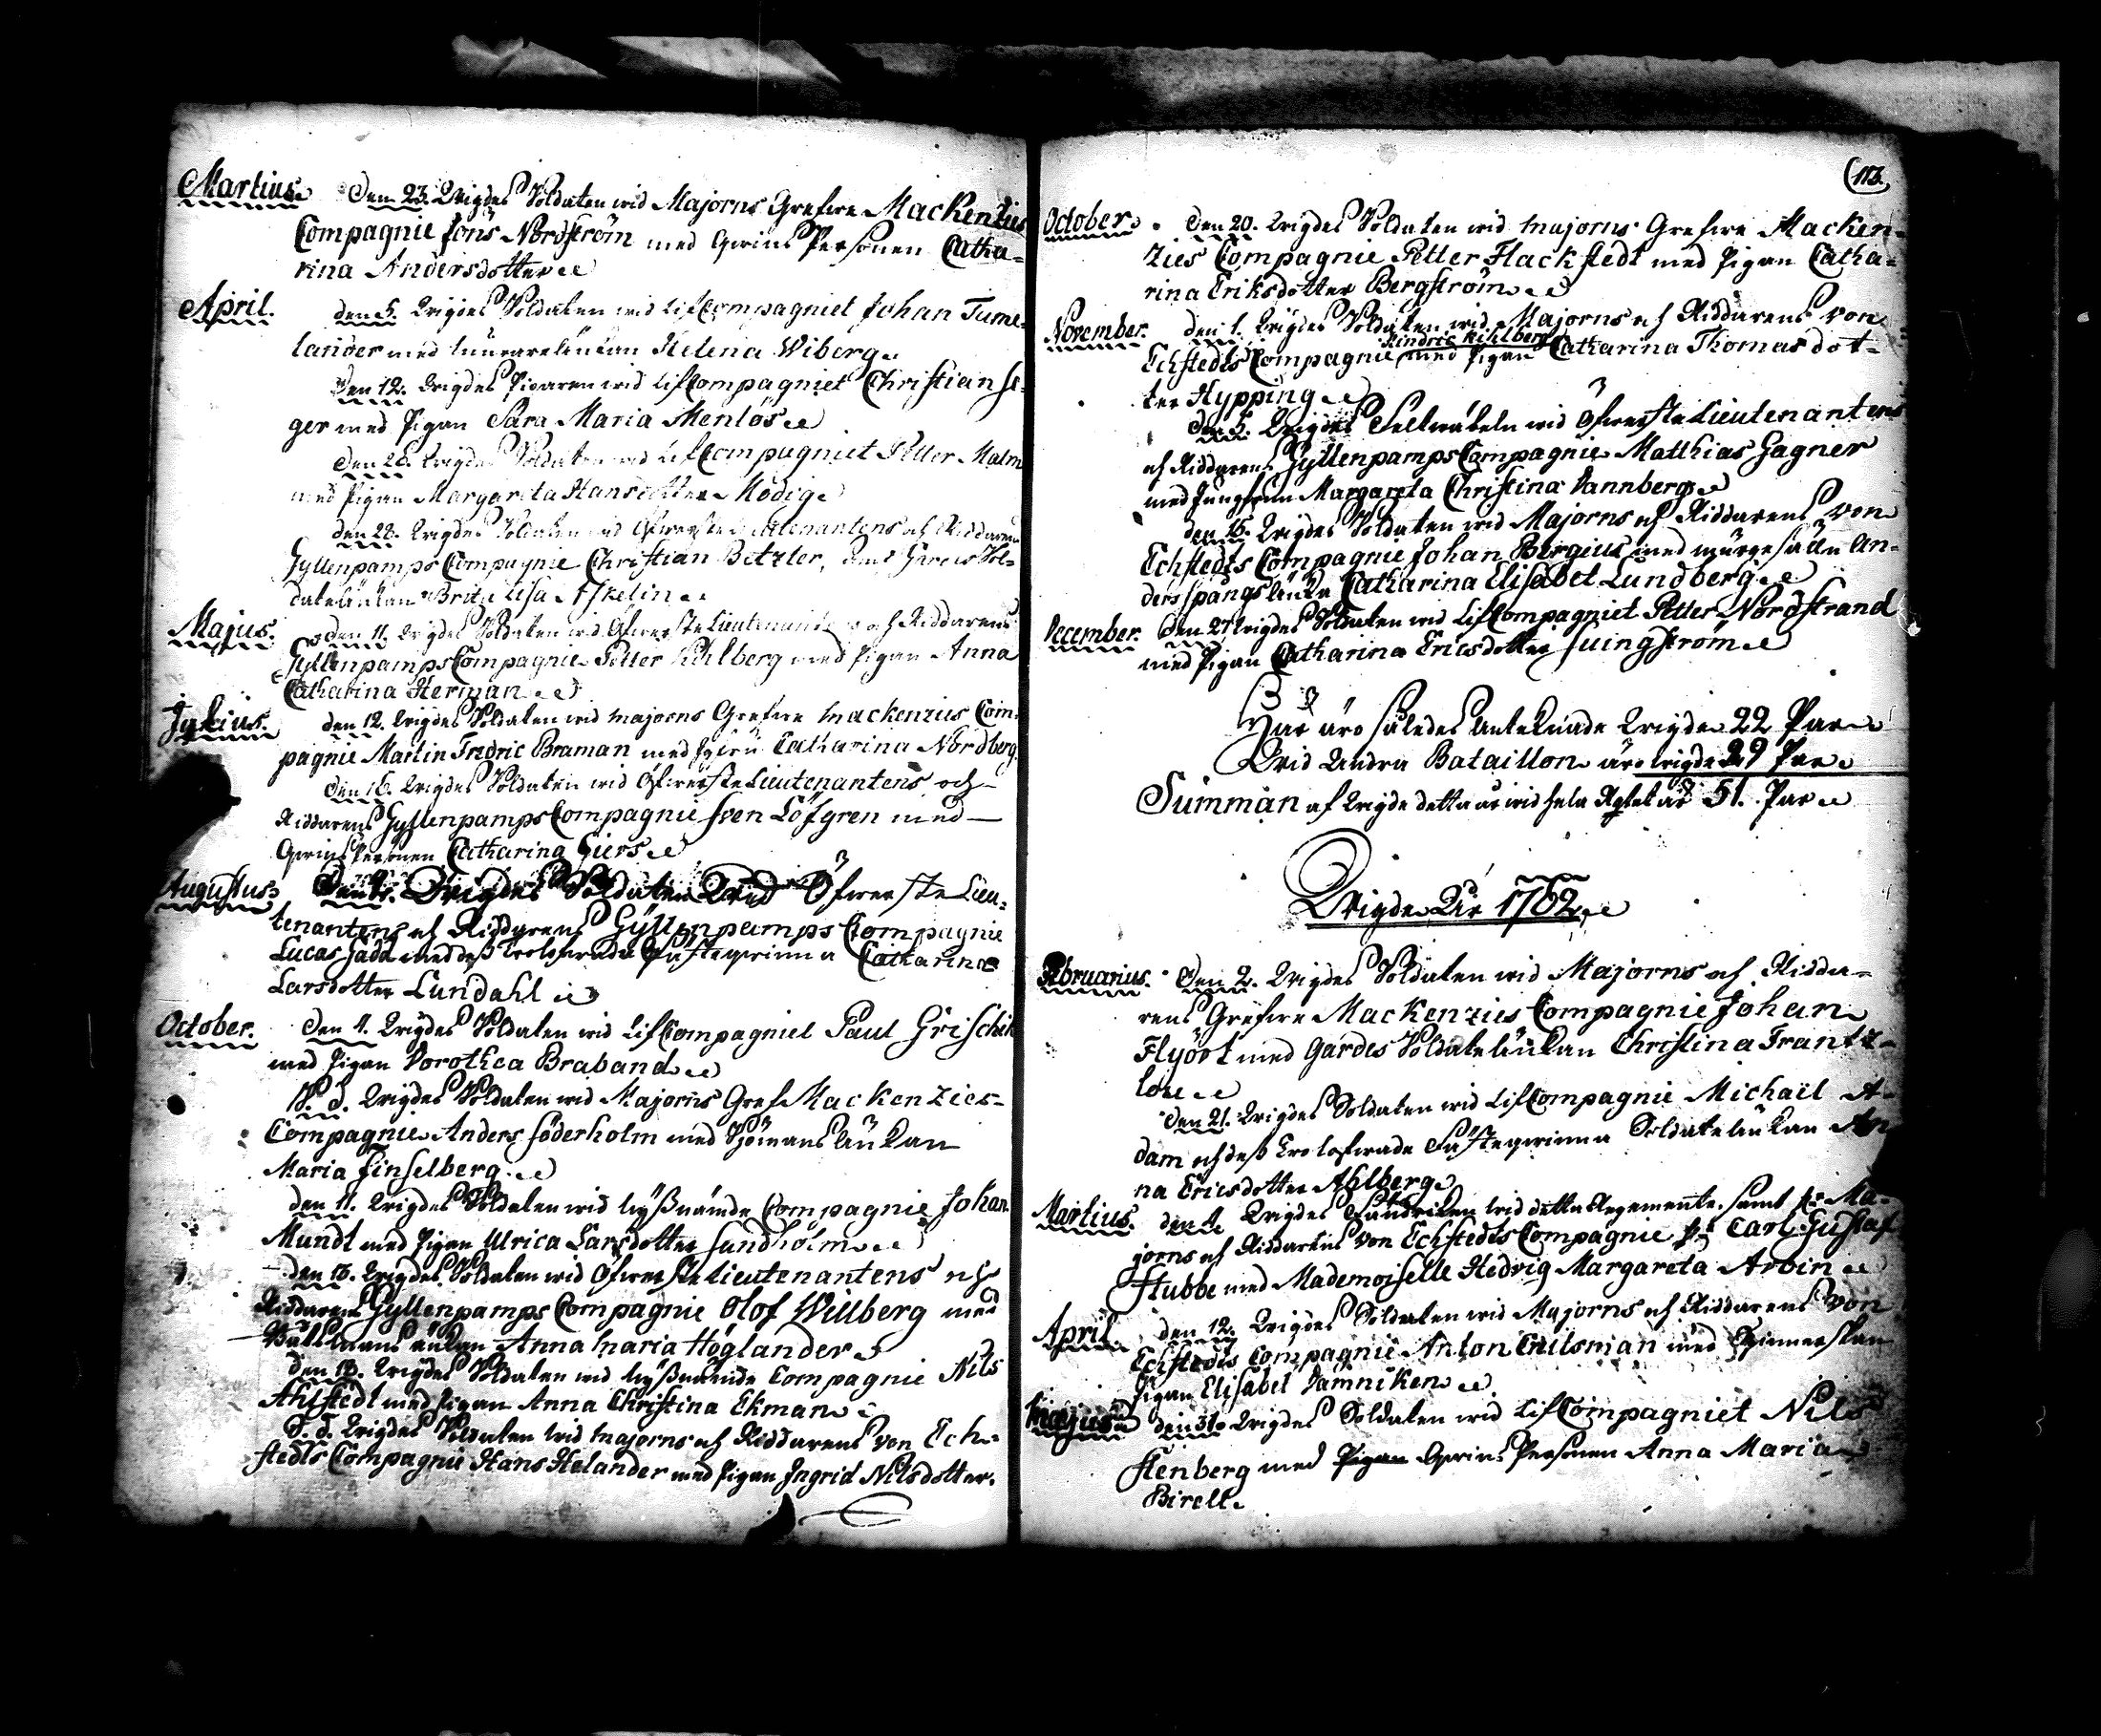 Martius. Den 23. Wigdes Soldaten wid Majorns Grefwe Mackenzies
Compagnie Jöns Nordström med Qwins Personen Catha-
rina Andersdotter
April. den 5. Wigdes Soldaten wid LifCompagniet Johan Tume-
lander med Enkan Helena Wiberg
Den 12. Wigdes wid LifCompagniet Christian Se-
ger med Pigan Sara Maria Menlös
Den 26. Wigdes Soldaten wid LifCompagniet Petter Malm
med Pigan Margareta Hansdotter Modig
den 28. Wigdes Soldaten wid Öfwerste Lieutenantens och Riddarens
Gyllenpamps Compagnie Christian Betzler, med Gardes Sol-
date änkan Brita Lisa Askelin
Majus. den 11. Wigdes Soldaten wid Öfwerste Lieutenantens och Riddarens
Gyllenpamps Compagnie Petter Kihlberg med Pigan Anna
Catharina Herman
Julius. den 12. Wigdes Soldaten wid Majorns Grefwe Mackenzies Com-
pagnie Martin Fredric Braman med Catharina Nordberg
den 16. Wigdes Soldaten wid Öfwerste Lieutenantens och
Riddarens Gyllenpamps Compagnie Sven Löfgren med
Qwins Personen Catharina Giers
Augustus. Den Wigdes Soldaten Wid Öfwerste Lieu-
tenantens och Riddarens Gyllenpamps Compagnie
Lucas Gadd med dess trolofwade Fästeqwinna Catharina
Larsdotter Lundahl
October. Den 4. Wigdes Soldaten wid LifCompagniet Paul Grischik
med Pigan Dorothea Braband
S. D. Wigdes Soldaten wid Majorns Gref Mackenzies
Compagnie Anders Söderholm med Sjömans änkan
Maria Finselberg
den 11. Wigdes Soldaten wid nyßnämde Compagnie Johan
Mundt med Pigan Ulrica Larsdotter Sundholm
den 18. Wigdes Soldaten wid Öfwerste Lieutenantens och
Riddarens Gyllenpamps Compagnie Olof Willberg med
Båtsmans änkan Anna Maria Höglander
den 18. Wigdes Soldaten wid nyßnämde Compagnie Nils
Ahlstedt med Pigan Anna Christina Ekman
S. D. Wigdes Soldaten wid Majorns och Riddarens von Ech-
stedts Compagnie Hans Helander med Pigan Ingrid Nilsdotter.
113.
October. Den 20. Wigdes Soldaten wid Majorns Grefwe Macken-
zies Compagnie Petter Hackstedt med Pigan Catha-
rina Eriksdotter Bergström
November. den 1. Wigdes Soldaten wid Majorns och Riddarens von
Hindric Kihlberg
Echstedts Compagnie med Pigan Catharina Thomasdot-
ter Hypping
Den 5. Wigdes Feltwäbeln wid Öfwerste Lieutenantens
och Riddarens Gyllenpamps Compagnie Matthias Gagner
med Jungfrun Margareta Christina Dannberg
den 15. Wigdes Soldaten wid Majorns och Riddarens von
Echstedts Compagnie Johan Bergius med An-
ders Spångs änka Catharina Elisabet Lundberg
December. Den 27 Wigdes Soldaten wid LifCompagniet Petter Nordstrand
med Pigan Catharina Ericsdotter Liungström
Här äro således antecknade Wigde 22 Par
Wid Andra Bataillon äro wigde 29 Par
Summan af Wigde detta år wid hela Regtet är 51. Par
Wigde År 1762.
Februarius. Den 2. Wigdes Soldaten wid Majorns och Ridda-
rens Grefwe Mackenzies Compagnie Johan
Flyört med Gardes Soldate änkan Christina Frantz-
lou
Den 21. Wigdes Soldaten wid LifCompagnie Michaël A-
dam och dess trolofwade Fästeqwinna Soldate änkan An-
na Ericsdotter Ahlberg
Martius. den 4. Wigdes Fändriken wid detta Regemente, samt Ma-
jorns och Riddarens von Echstedts Compagnie Carl Gustaf
Stubbe med Mademoiselle Hedvig Margareta Arbin
April. den 12. Wigdes Soldaten wid Majorns och Riddarens von
Echstedts Compagnie Anton Enilsman med Spinnerskan
Pigan Elisabet Damniken
Majus. den 31. Wigdes Soldaten wid LifCompagniet Nils
Stenberg med Pigan Qwins Personen Anna Maria
Birell